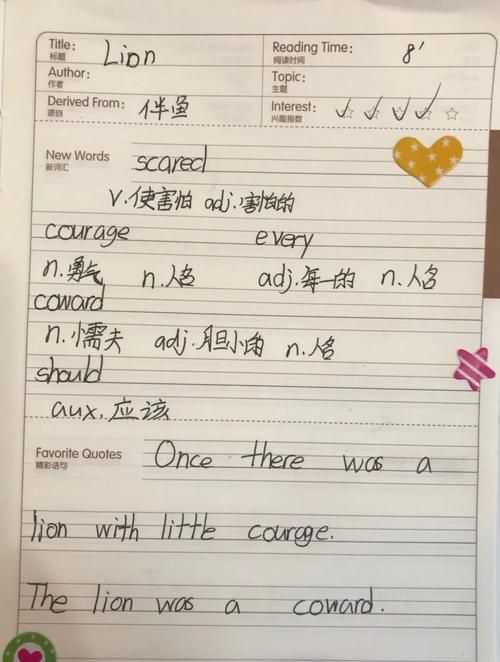 Title: Lion Reading Time: 8'
标题 阅读时间
Author: Topic:
作者 主题
Derived From: 伴鱼 Interest:
源自 兴趣指数
New Words scared
新词汇
v.使害怕 adj.害怕的
courage every
n.勇气 n.人名 adj.每一的 n.人名
coward
n.懦夫 adj.胆小的 n.人名
should
aux.应该
Favorite Quotes Once there was a
精彩语句
lion with little courage.
The lion was a coward.